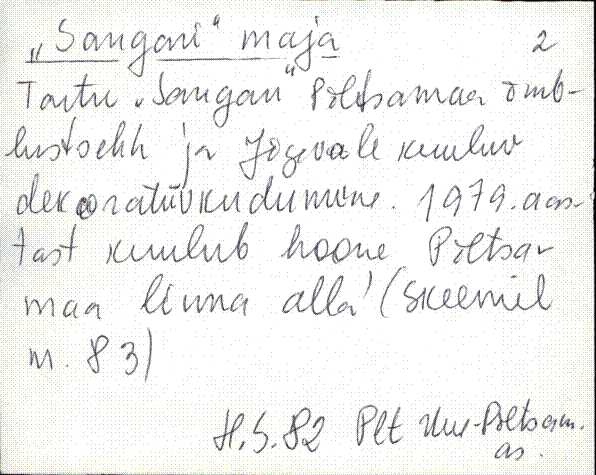 „Sangari" maja 2
Tartu „Sangari" Põltsamaa õmb-
lustsehh ja Jõgevale kuuluv
dekoratiivkudumine. 1979. aas-
tast kuulub hoone Põltsa-
maa linna alla (skeemil
nr. 83)
H.S.82 Plt Uus-Põltsam.
as.